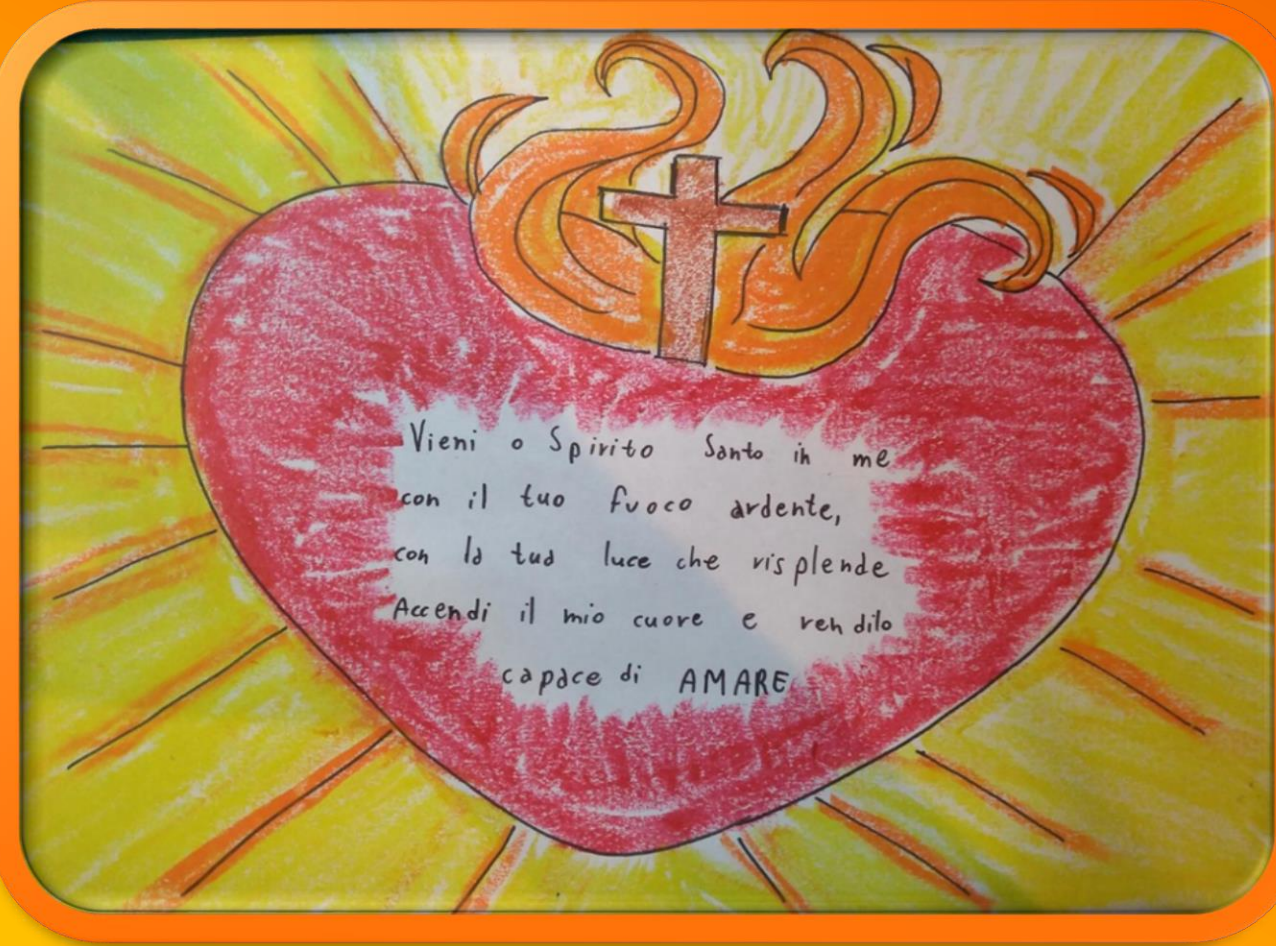 Vieni o Spirito Santo in me
con il tuo fuoco ardente,
con la tua luce che risplende
Accendi il mio cuore e rendilo
capace di AMARE